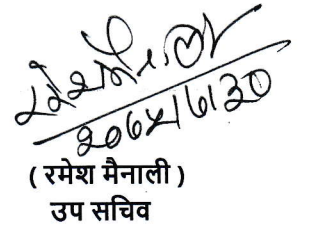 २०७५।७।३०
( रमेश मैनाली )
उप सचिव